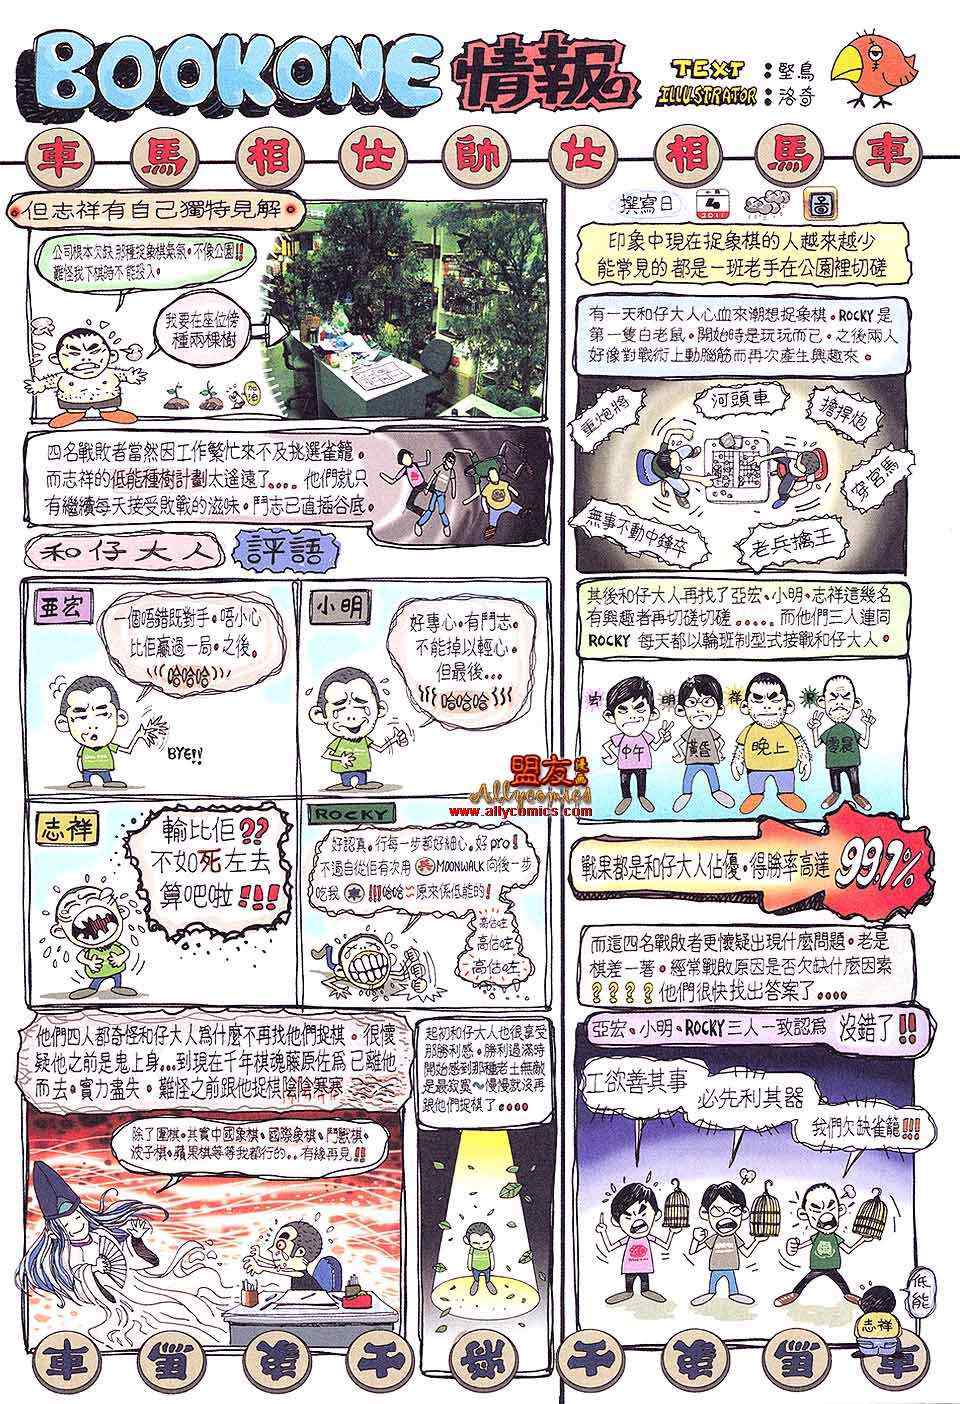 BOOKONE 情報
TEXT：堅鳥
ILLUSTRATOR：洛奇
車 馬 相 仕 帥 仕 相 馬 車
撰寫日
4
2011
圖
印象中現在捉象棋的人越來越少
能常見的都是一班老手在公園裡切磋
有一天和仔大人心血來潮想捉象棋。ROCKY是
第一隻白老鼠。開始時是玩玩而已。之後兩人
好像對戰術上動腦筋而再次產生興趣來。
重炮將
河頭車
擔捍炮
無事不動中鋒卒
老兵擒王
其後和仔大人再找了亞宏、小明、志祥這幾名
有興趣者再切磋切磋..... 而他們三人連同
ROCKY 每天都以輪班制型式接戰和仔大人。
宏 明 祥
中午 黃昏 晚上 凌晨
戰果都是和仔大人佔優。得勝率高達 99.1%
而這四名戰敗者更懷疑出現什麼問題。老是
棋差一著。經常戰敗原因是否欠缺什麼因素
????他們很快找出答案了....
亞宏、小明、ROCKY三人一致認為 沒錯了!!
工欲善其事
必先利其器
我們欠缺雀籠!!!
低能
志祥
但志祥有自己獨特見解
公司根本欠缺那種捉象棋氣氛。不像公園!!
難怪我下棋時不能投入。
我要在座位傍
種兩棵樹
加油
四名戰敗者當然因工作繁忙來不及挑選雀籠。
而志祥的低能種樹計劃太遙遠了.... 他們就只
有繼續每天接受敗戰的滋味。鬥志已直插谷底。
和仔大人 評語
亞宏
一個唔錯既對手。唔小心
比佢贏過一局。之後。
哈哈哈
BYE!!
小明
好專心。有鬥志。
不能掉以輕心。
但最後...
哈哈哈
志祥
輸比佢??
不如死左去
算吧啦!!!
ROCKY
好認真。行每一步都好細心。好pro!
不過自從佢有次用 兵 MOONWALK 向後一步
吃我 車 !!!哈哈～原來係低能的!
高估咗
高估咗
高估咗
他們四人都奇怪和仔大人為什麼不再找他們捉棋。很懷
疑他之前是鬼上身...到現在千年棋魂藤原佐為已離他
而去。實力盡失。難怪之前跟他捉棋陰陰寒寒
除了圍棋。其實中國象棋、國際象棋、鬥獸棋、
波子棋。蘋果棋等等我都行的..有緣再見!!
起初和仔大人也很享受
那勝利感。勝利過滿時
開始感到那種老土無敵
是最寂寞～慢慢就沒再
跟他們捉棋了....
盟友漫画
Allycomics
www.allycomics.com
車 馬 象 士 將 士 象 馬 車